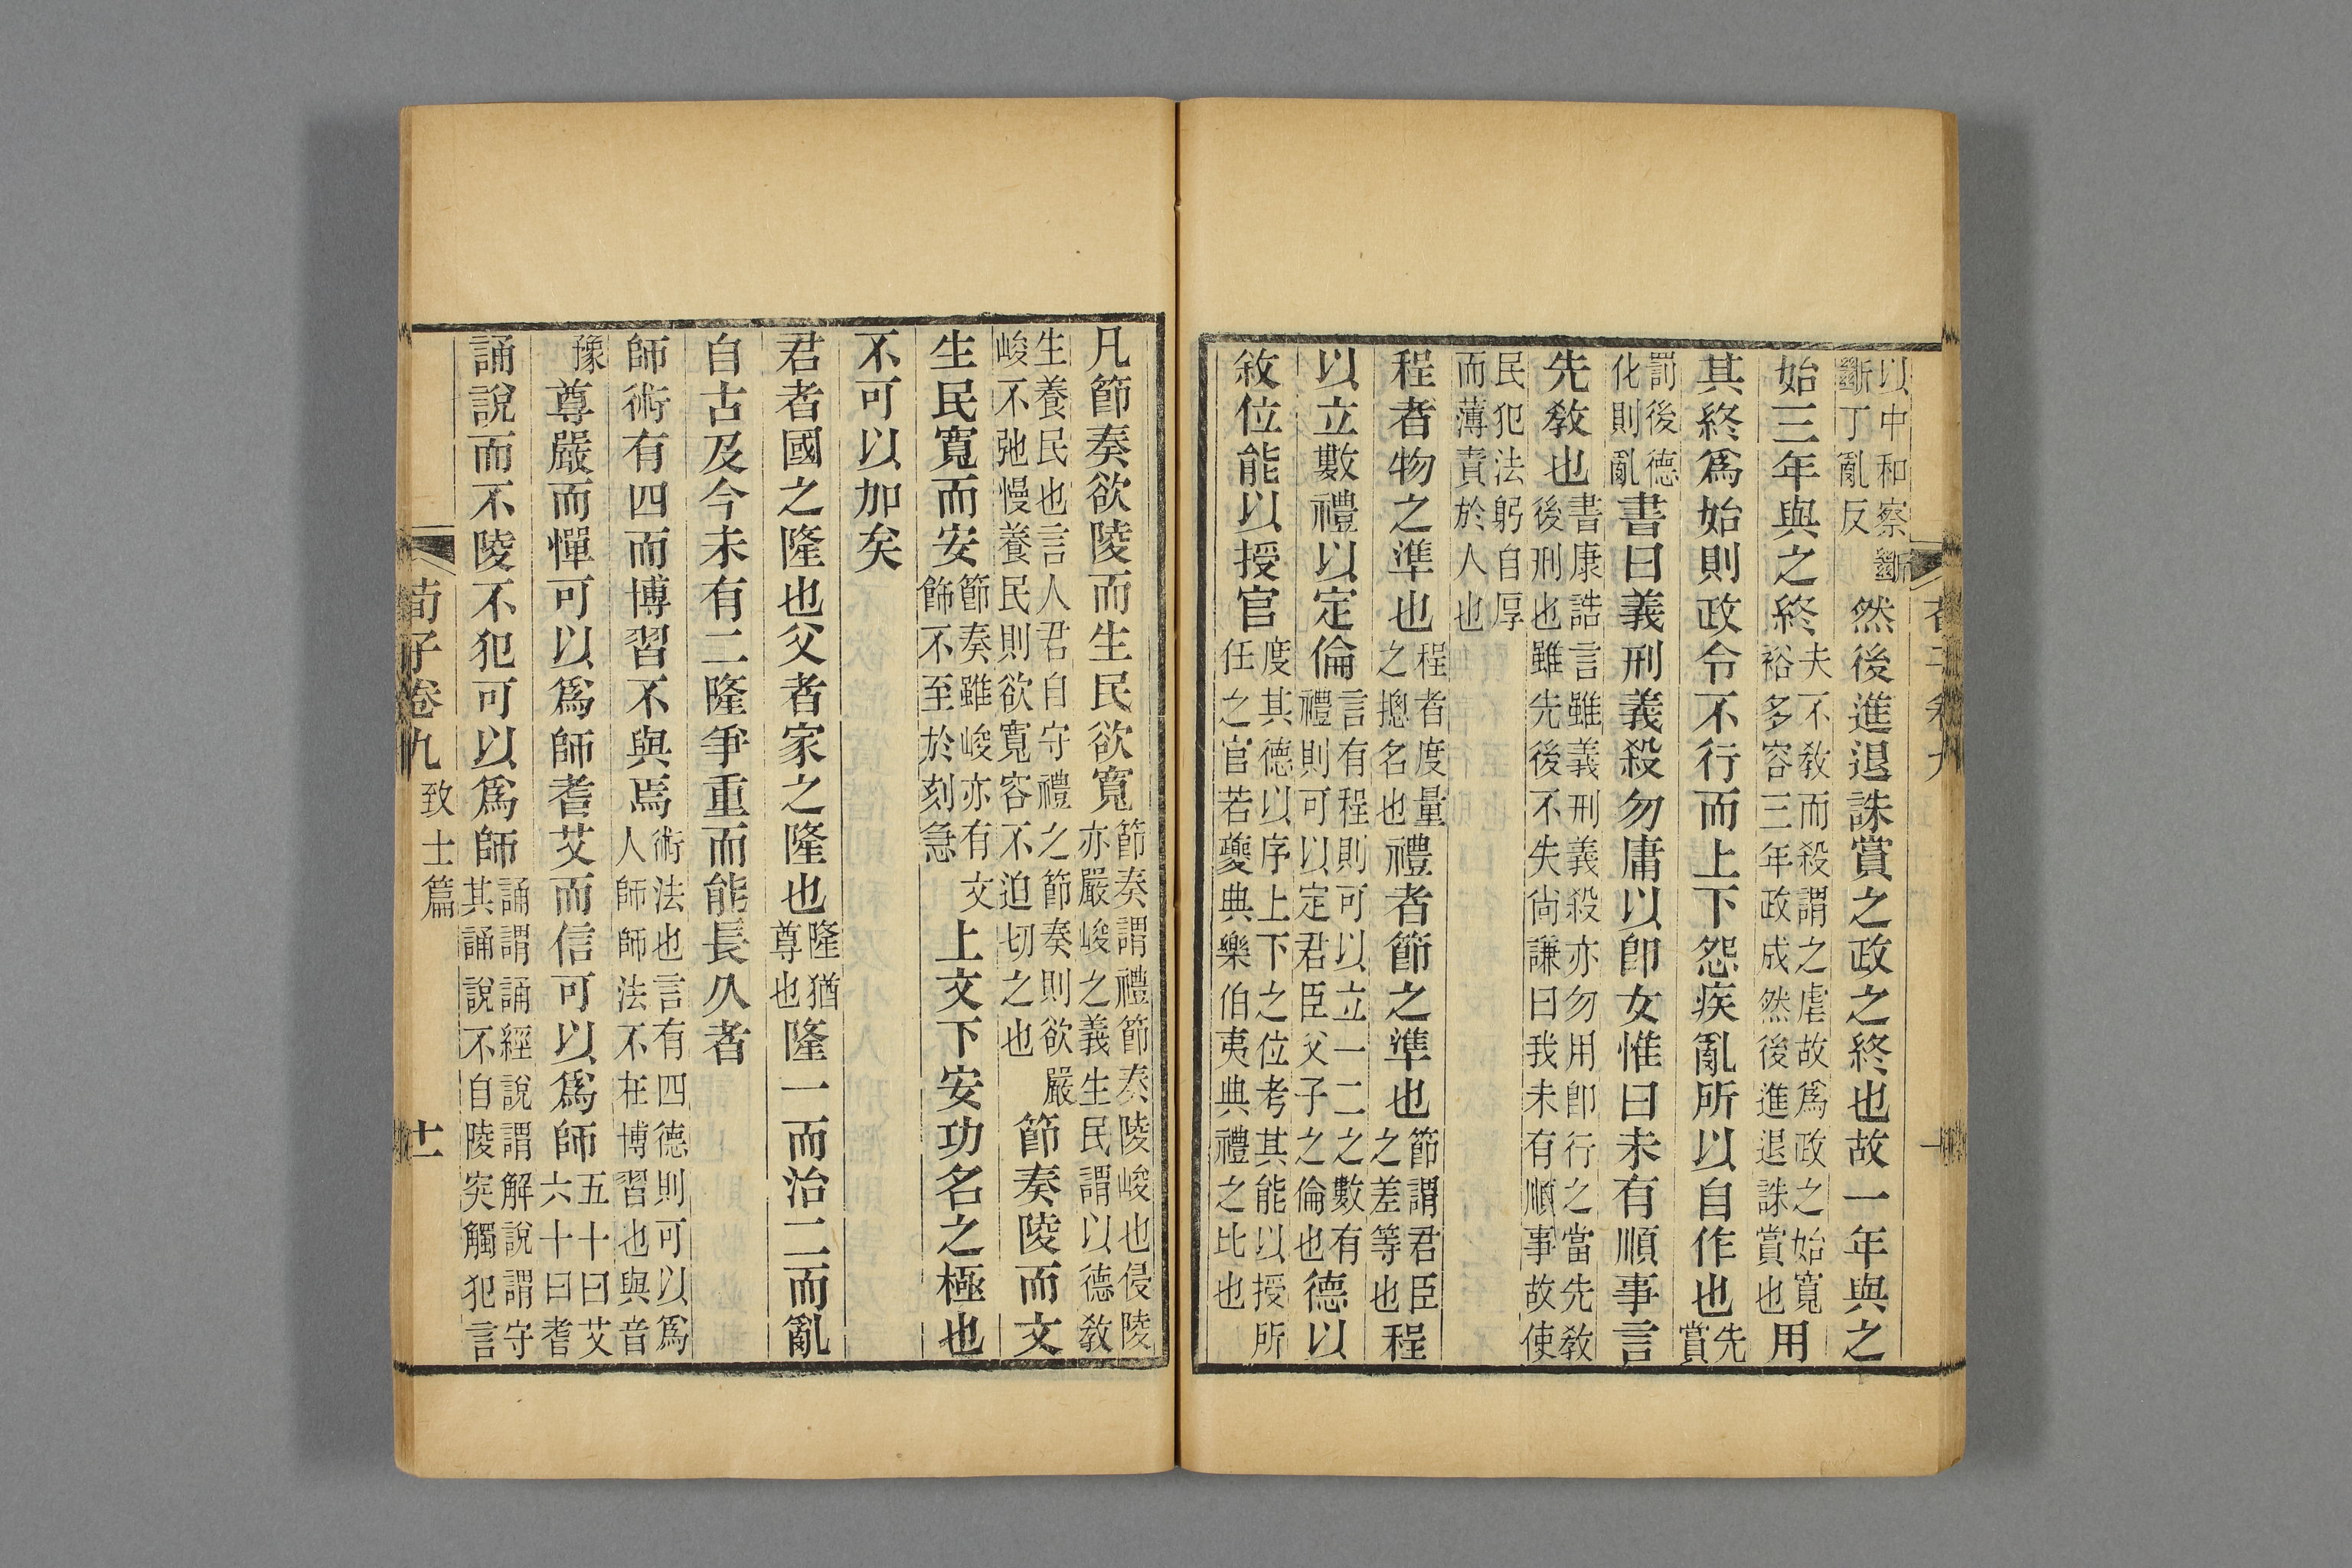 以中和察斷斷丁亂反然後進退誅賞之政之終也故一年與之
始三年與之終夫不教而殺謂之虐故爲政之始寬裕多容三年政成然後進退誅賞也用
其終爲始則政令不行而上下怨疾亂所以自作也先賞
罰後德化則亂書曰義刑義殺勿庸以卽女惟曰未有順事言
先教也書康誥言雖義刑義殺亦勿用卽行之當先教後刑也雖先後不失尙謙曰我未有順事故使
民犯法躬自厚而薄責於人也
程者物之準也程者度量之揔名也禮者節之準也節謂君臣之差等也程
以立數禮以定倫言有程則可以立一二之數有禮則可以定君臣父子之倫也德以
敘位能以授官度其德以序上下之位考其能以授所任之官若夔典樂伯夷典禮之比也
凡節奏欲陵而生民欲寬節奏謂禮節奏陵峻也侵陵亦嚴峻之義生民謂以德教
生養民也言人君自守禮之節奏則欲嚴峻不弛慢養民則欲寬容不迫切之也節奏陵而文
生民寬而安節奏雖峻亦有文飾不至於刻急上文下安功名之極也
不可以加矣
君者國之隆也父者家之隆也隆猶尊也隆一而治二而亂
自古及今未有二隆爭重而能長久者
師術有四而博習不與焉術法也言有四德則可以爲人師師法不在博習也與音
豫尊嚴而憚可以爲師耆艾而信可以爲師五十曰艾六十曰耆
誦說而不陵不犯可以爲師誦謂誦經說謂解說謂守其誦說不自陵突觸犯言
荀子卷九 致士篇 十一